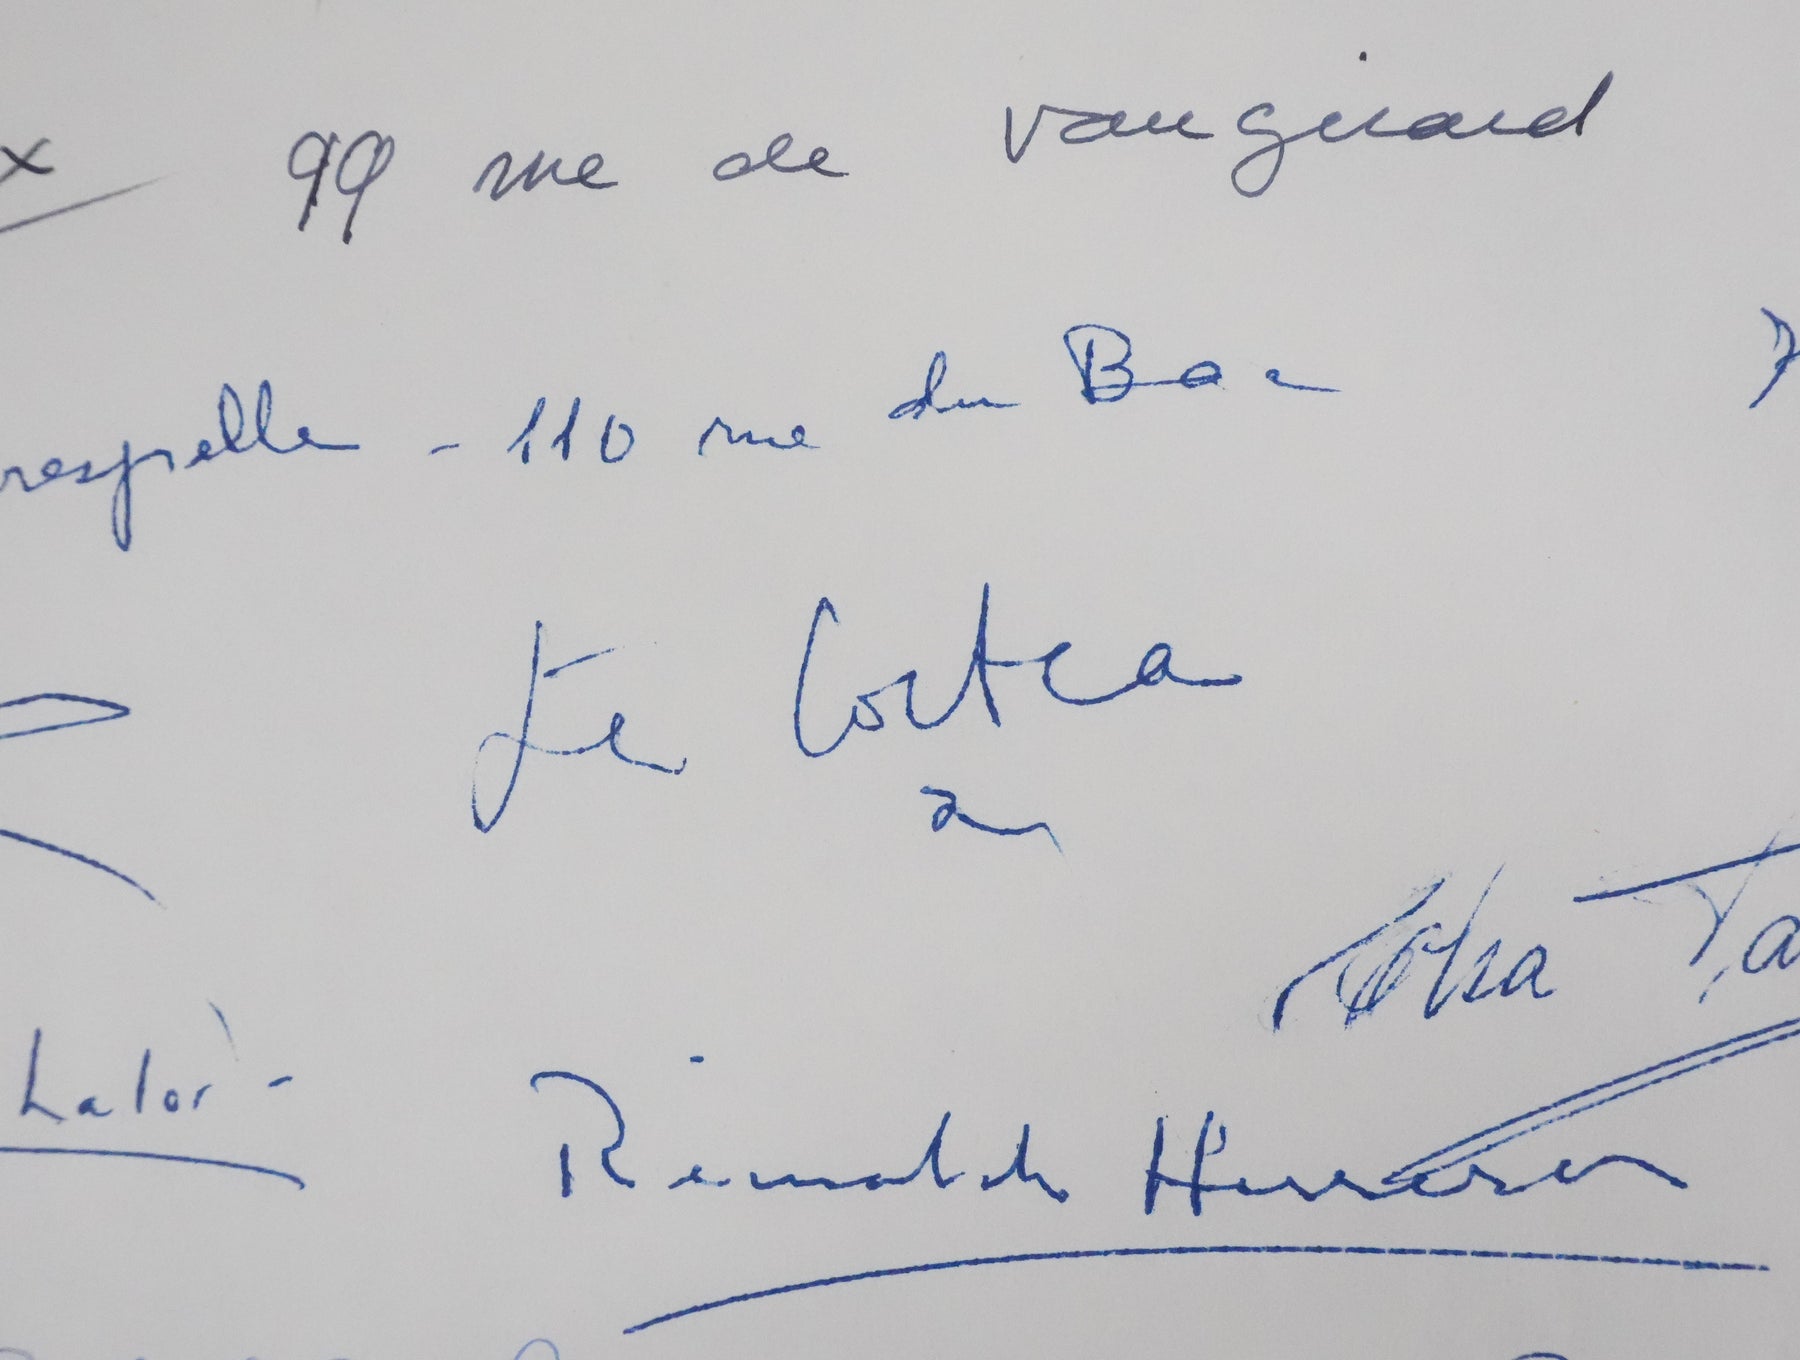 x 99 rue de vaugirard
respelle - 110 rue du Bac 7
Le Cortea
Ta
Lalor -
Reinaldo Herrera